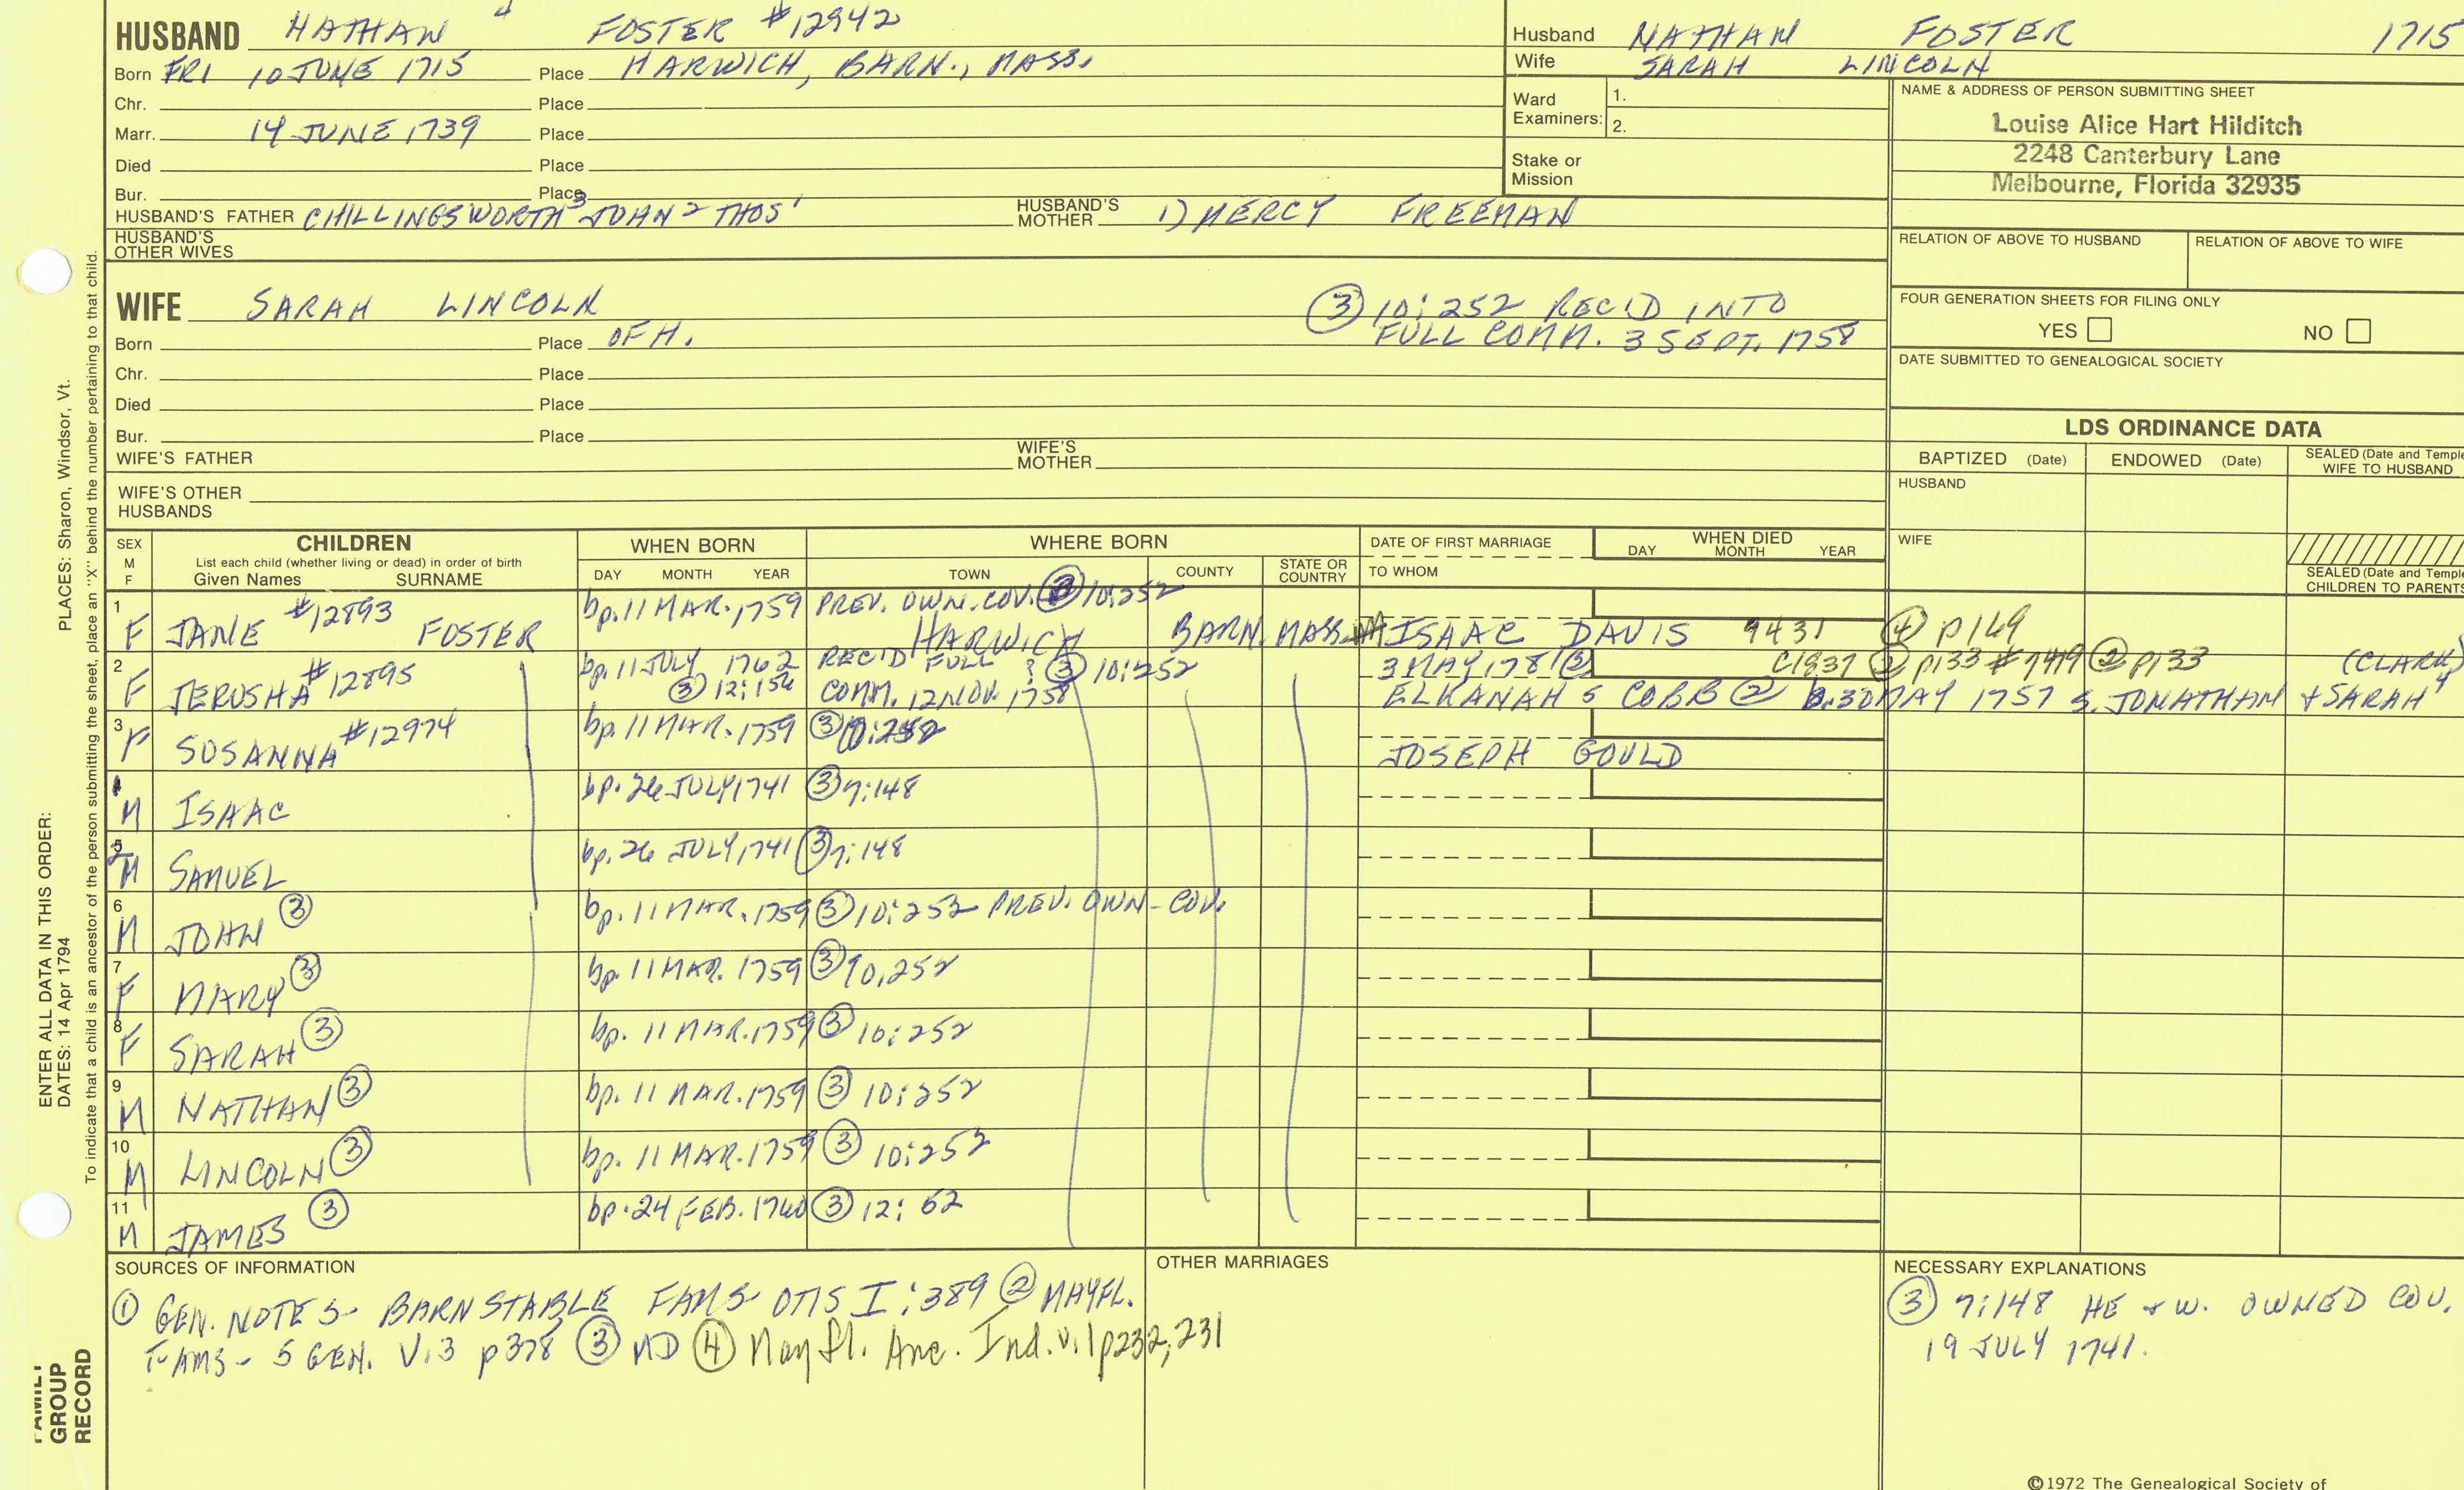 HUSBAND NATHAN 4 FOSTER #12942
Born FRI 10 JUNE 1715 Place HARWICH, BARN., MASS.
Chr. Place
Marr. 14 JUNE 1739 Place
Died Place
Bur. Place
HUSBAND'S FATHER CHILLINGSWORTH 3 JOHN 2 THOS 1 HUSBAND'S MOTHER 1) MERCY FREEMAN
HUSBAND'S OTHER WIVES
WIFE SARAH LINCOLN
Born Place OF H.
③ 10:252 REC'D INTO
FULL COMM. 3 SEPT. 1758
Chr. Place
Died Place
Bur. Place
WIFE'S FATHER WIFE'S MOTHER
WIFE'S OTHER HUSBANDS
Husband NATHAN FOSTER 1715
Wife SARAH LINCOLN
Ward Examiners: 1.
2.
Stake or Mission
NAME & ADDRESS OF PERSON SUBMITTING SHEET
Louise Alice Hart Hilditch
2248 Canterbury Lane
Melbourne, Florida 32935
RELATION OF ABOVE TO HUSBAND RELATION OF ABOVE TO WIFE
FOUR GENERATION SHEETS FOR FILING ONLY
YES NO
DATE SUBMITTED TO GENEALOGICAL SOCIETY
LDS ORDINANCE DATA
BAPTIZED (Date) ENDOWED (Date) SEALED (Date and Temple WIFE TO HUSBAND
HUSBAND
WIFE
SEALED (Date and Temple CHILDREN TO PARENTS
SEX M F CHILDREN WHEN BORN WHERE BORN DATE OF FIRST MARRIAGE WHEN DIED
List each child (whether living or dead) in order of birth
Given Names SURNAME DAY MONTH YEAR TOWN COUNTY STATE OR COUNTRY TO WHOM DAY MONTH YEAR
1 bp. 11 MAR. 1759 PREV. OWN. COV. ③ 10:252
F JANE #12893 FOSTER HARWICH BARN. MASS. ISAAC DAVIS 9431 ④ p149
2 bp. 11 JULY 1762 REC'D FULL ? ③ 10:252 3 MAY 1781 ③ C1837 ② p133 #7419 ② p133 (CLARK)
F JERUSHA #12895 ③ 12:156 COMM. 12 NOV. 1758 ELKANAH 5 COBB ② b. 30 MAY 1757 S. JONATHAN 4 & SARAH
3 bp. 11 MAR. 1759 ③ 10:252
F SUSANNA #12974 JOSEPH GOULD
4 bp. 26 JULY 1741 ③ 7:148
M ISAAC
5 bp. 26 JULY 1741 ③ 7:148
M SAMUEL
6 bp. 11 MAR. 1759 ③ 10:252 PREV. OWN. COV.
M JOHN ③
7 bp. 11 MAR. 1759 ③ 10:252
F MARY ③
8 bp. 11 MAR. 1759 ③ 10:252
F SARAH ③
9 bp. 11 MAR. 1759 ③ 10:252
M NATHAN ③
10 bp. 11 MAR. 1759 ③ 10:252
M LINCOLN ③
11 bp. 24 FEB. 1760 ③ 12:62
M JAMES ③
SOURCES OF INFORMATION
① GEN. NOTES BARNSTABLE FAMS OTIS I:389 ② MAYFL.
FAMS - 5 GEN. V.3 p378 ③ MD ④ Mayfl. Anc. Ind. v.1 p232, 231
OTHER MARRIAGES
NECESSARY EXPLANATIONS
③ 7:148 HE & W. OWNED COV.
19 JULY 1741.
©1972 The Genealogical Society of
ENTER ALL DATA IN THIS ORDER:
DATES: 14 Apr 1794 PLACES: Sharon, Windsor, Vt.
To indicate that a child is an ancestor of the person submitting the sheet, place an "X" behind the number pertaining to that child.
FAMILY
GROUP
RECORD